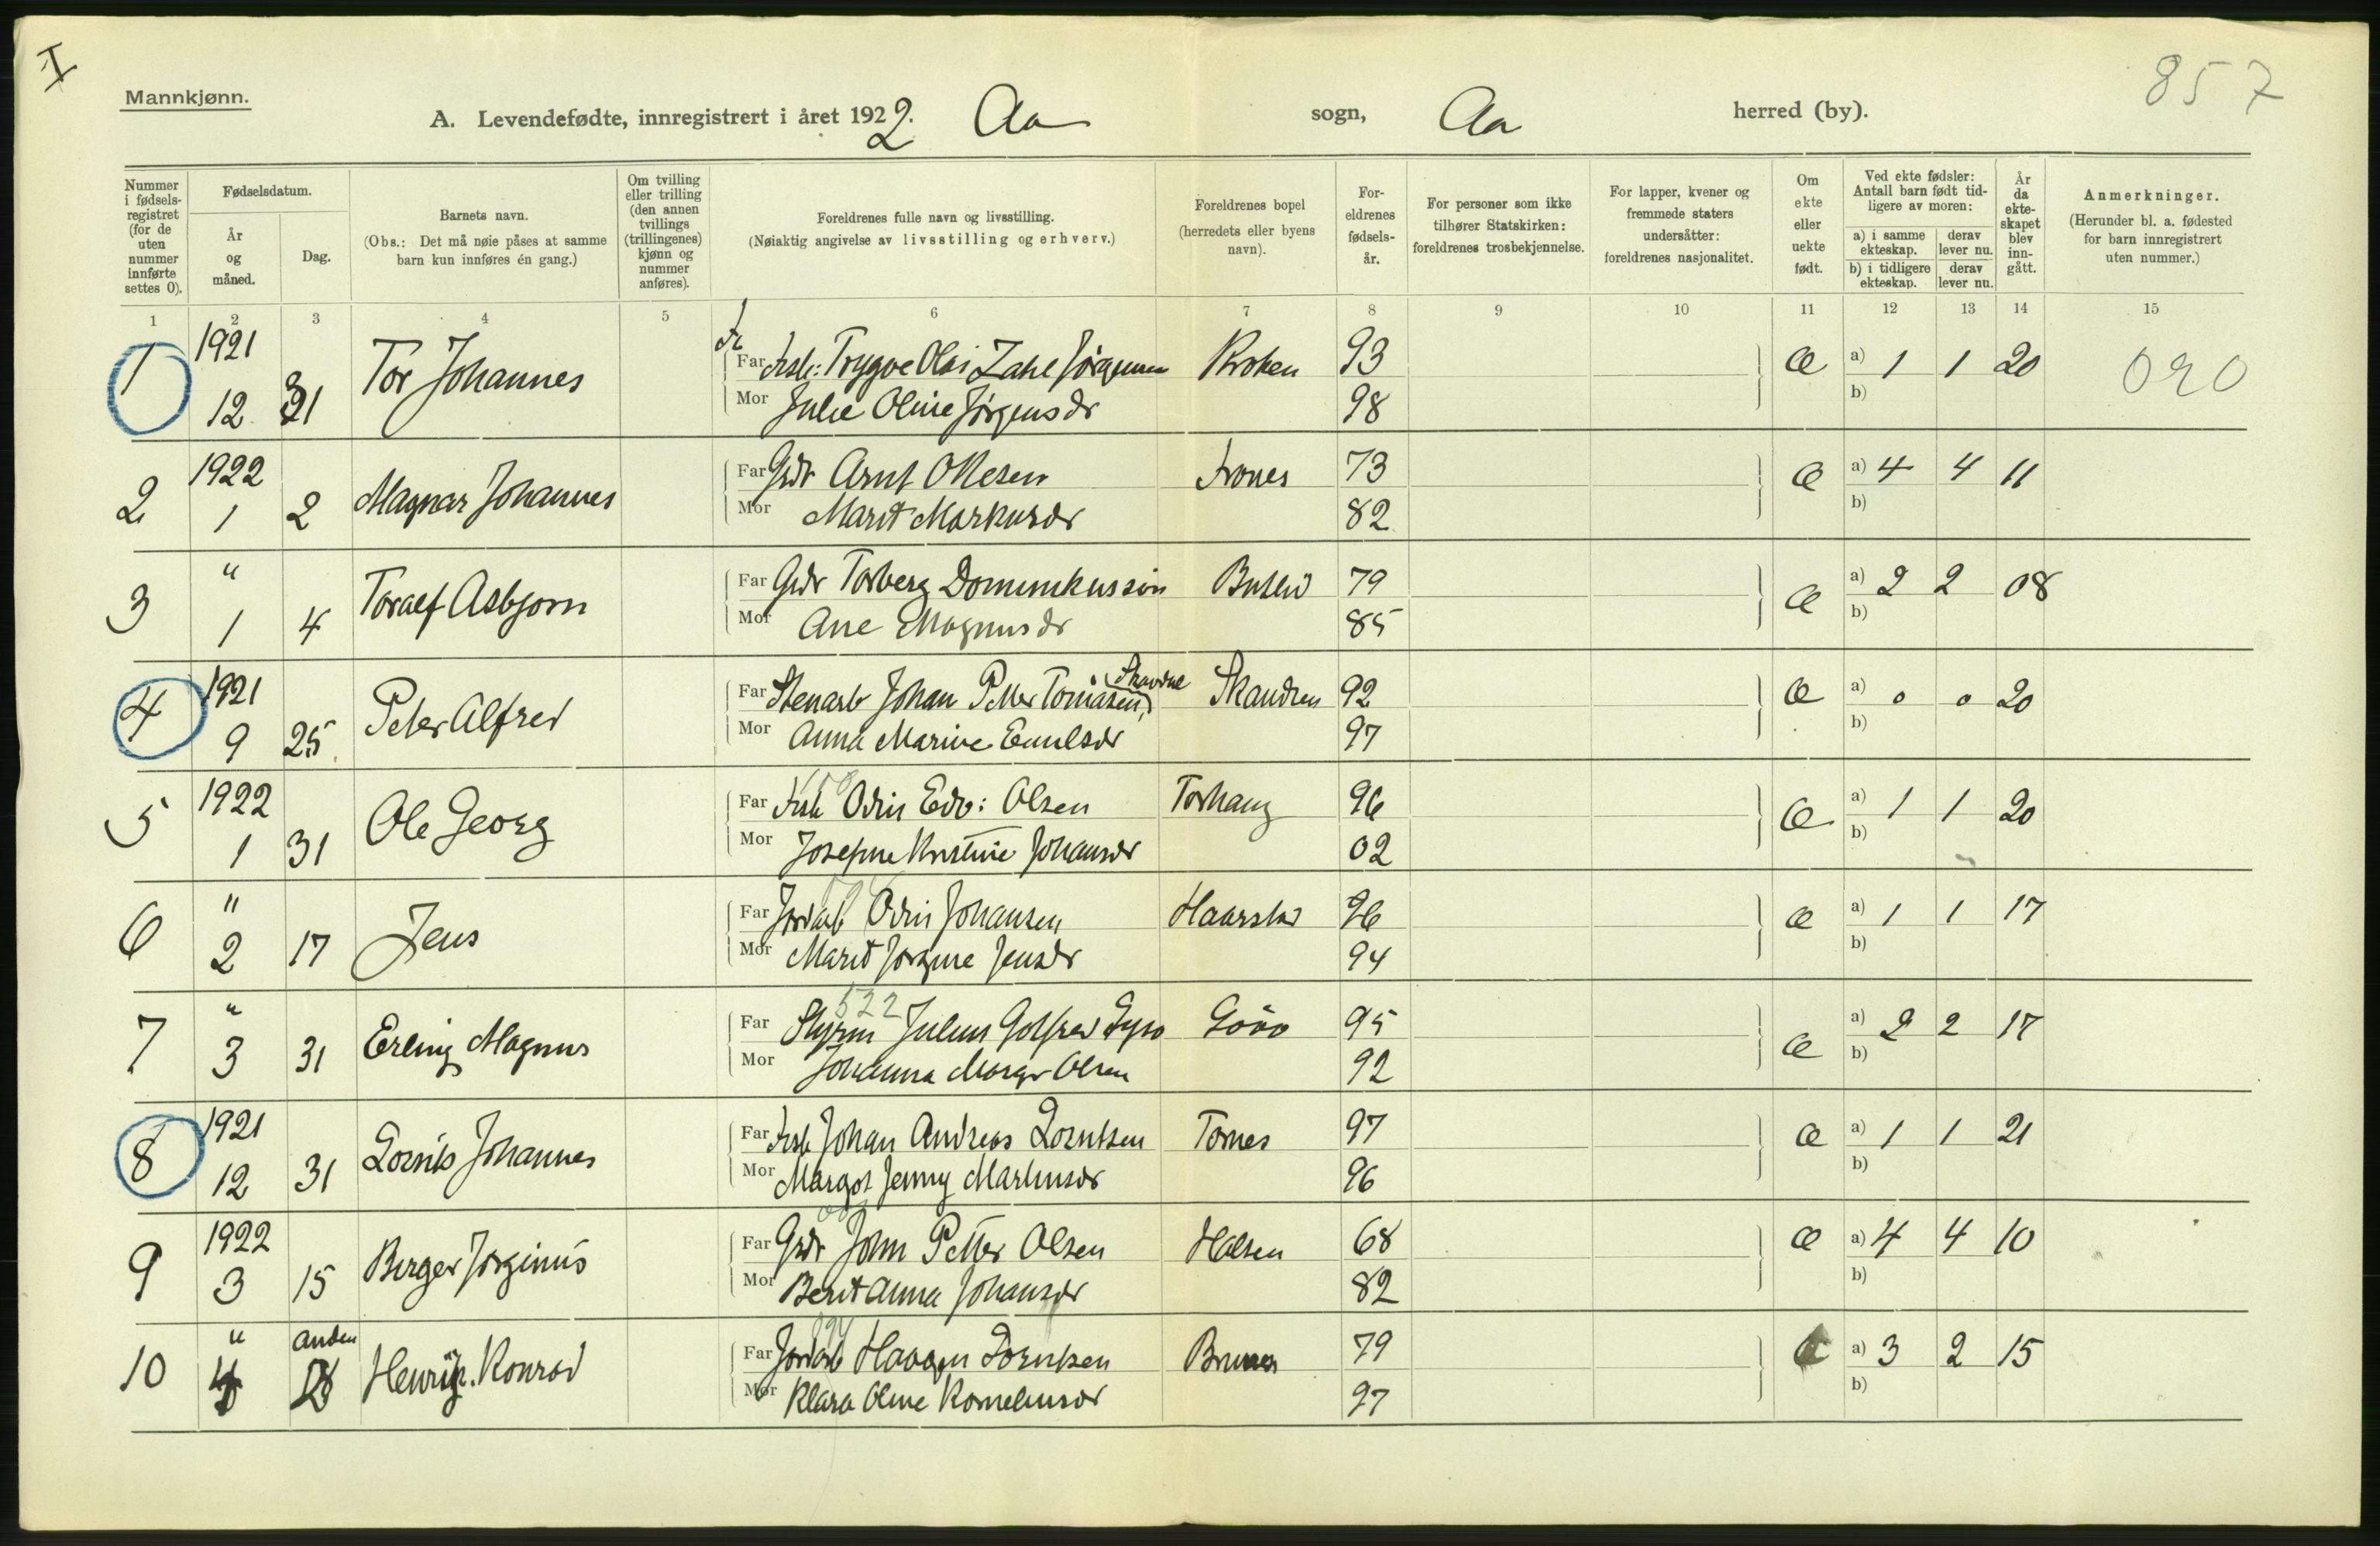 I
Mannkjønn.
857
A. Levendefødte, innregistrert i året 1922. Aa sogn, Aa herred (by).
Nummer i fødsels-registret (for de uten nummer innførte settes 0).
Fødselsdatum.
År og måned.
Dag.
Barnets navn.
(Obs.: Det må nøie påses at samme barn kun innføres én gang.)
Om tvilling eller trilling (den annen tvillings (trillingenes) kjønn og nummer anføres).
Foreldrenes fulle navn og livsstilling.
(Nøiaktig angivelse av livsstilling og erhverv.)
Foreldrenes bopel (herredets eller byens navn).
For-eldrenes fødsels-år.
For personer som ikke tilhører Statskirken: foreldrenes trosbekjennelse.
For lapper, kvener og fremmede staters undersåtter: foreldrenes nasjonalitet.
Om ekte eller uekte født.
Ved ekte fødsler: Antall barn født tid-ligere av moren:
a) i samme ekteskap. derav lever nu.
b) i tidligere ekteskap. derav lever nu.
År da ekte-skapet blev inn-gått.
Anmerkninger.
(Herunder bl. a. fødested for barn innregistrert uten nummer.)
1 2 3 4 5 6 7 8 9 10 11 12 13 14 15
1 1921 12 31 Tor Johannes Far Fisk: Trygve Olai Zahl Jørgensen Kroken 93 Æ a) 1 1 20 020
Mor Julie Oline Jørgensdr 98 b)
2 1922 1 2 Magnar Johannes Far Grdr Arnt Olesen 73 Æ a) 4 4 11
Mor Marit Markusdr 82 b)
3 " 1 4 Toralf Asbjørn Far Grdr Torberg Dominikussen 79 Æ a) 2 2 08
Mor Ane Magnusdr 85 b)
4 1921 9 25 Peter Alfred Far Stenarb Johan Petter Tomasen 92 Æ a) 0 0 20
Mor Anna Marine Emilsdr 97 b)
5 1922 1 31 Ole Georg Far Fisk Odin Edv: Olsen Torhaug 96 Æ a) 1 1 20
Mor Josefine Kristine Johansdr 02 b)
6 " 2 17 Jens Far Jordarb Odin Johansen Haarstad 96 Æ a) 1 1 17
Mor Marit Jørgine Jensdr 94 b)
522
7 " 3 31 Erling Magnus Far Styrm Julius Gotfred 95 Æ a) 2 2 17
Mor Johanna Margr Olsen 92 b)
8 1921 12 31 Johannes Far Fisk Johan Andreas Lorntsen Tornes 97 Æ a) 1 1 21
Mor Margot Jenny Martinsdr 96 b)
9 1922 3 15 Birger Jørginus Far Grdr John Petter Olsen Halsen 68 Æ a) 4 4 10
Mor Berit Anna Johansdr 82 b)
10 " 4 anden Henrik Konrad Far Jordarb Haagen Lorntsen 79 a) 3 2 15
Mor Klara Oline Korneliusdr 97 b)